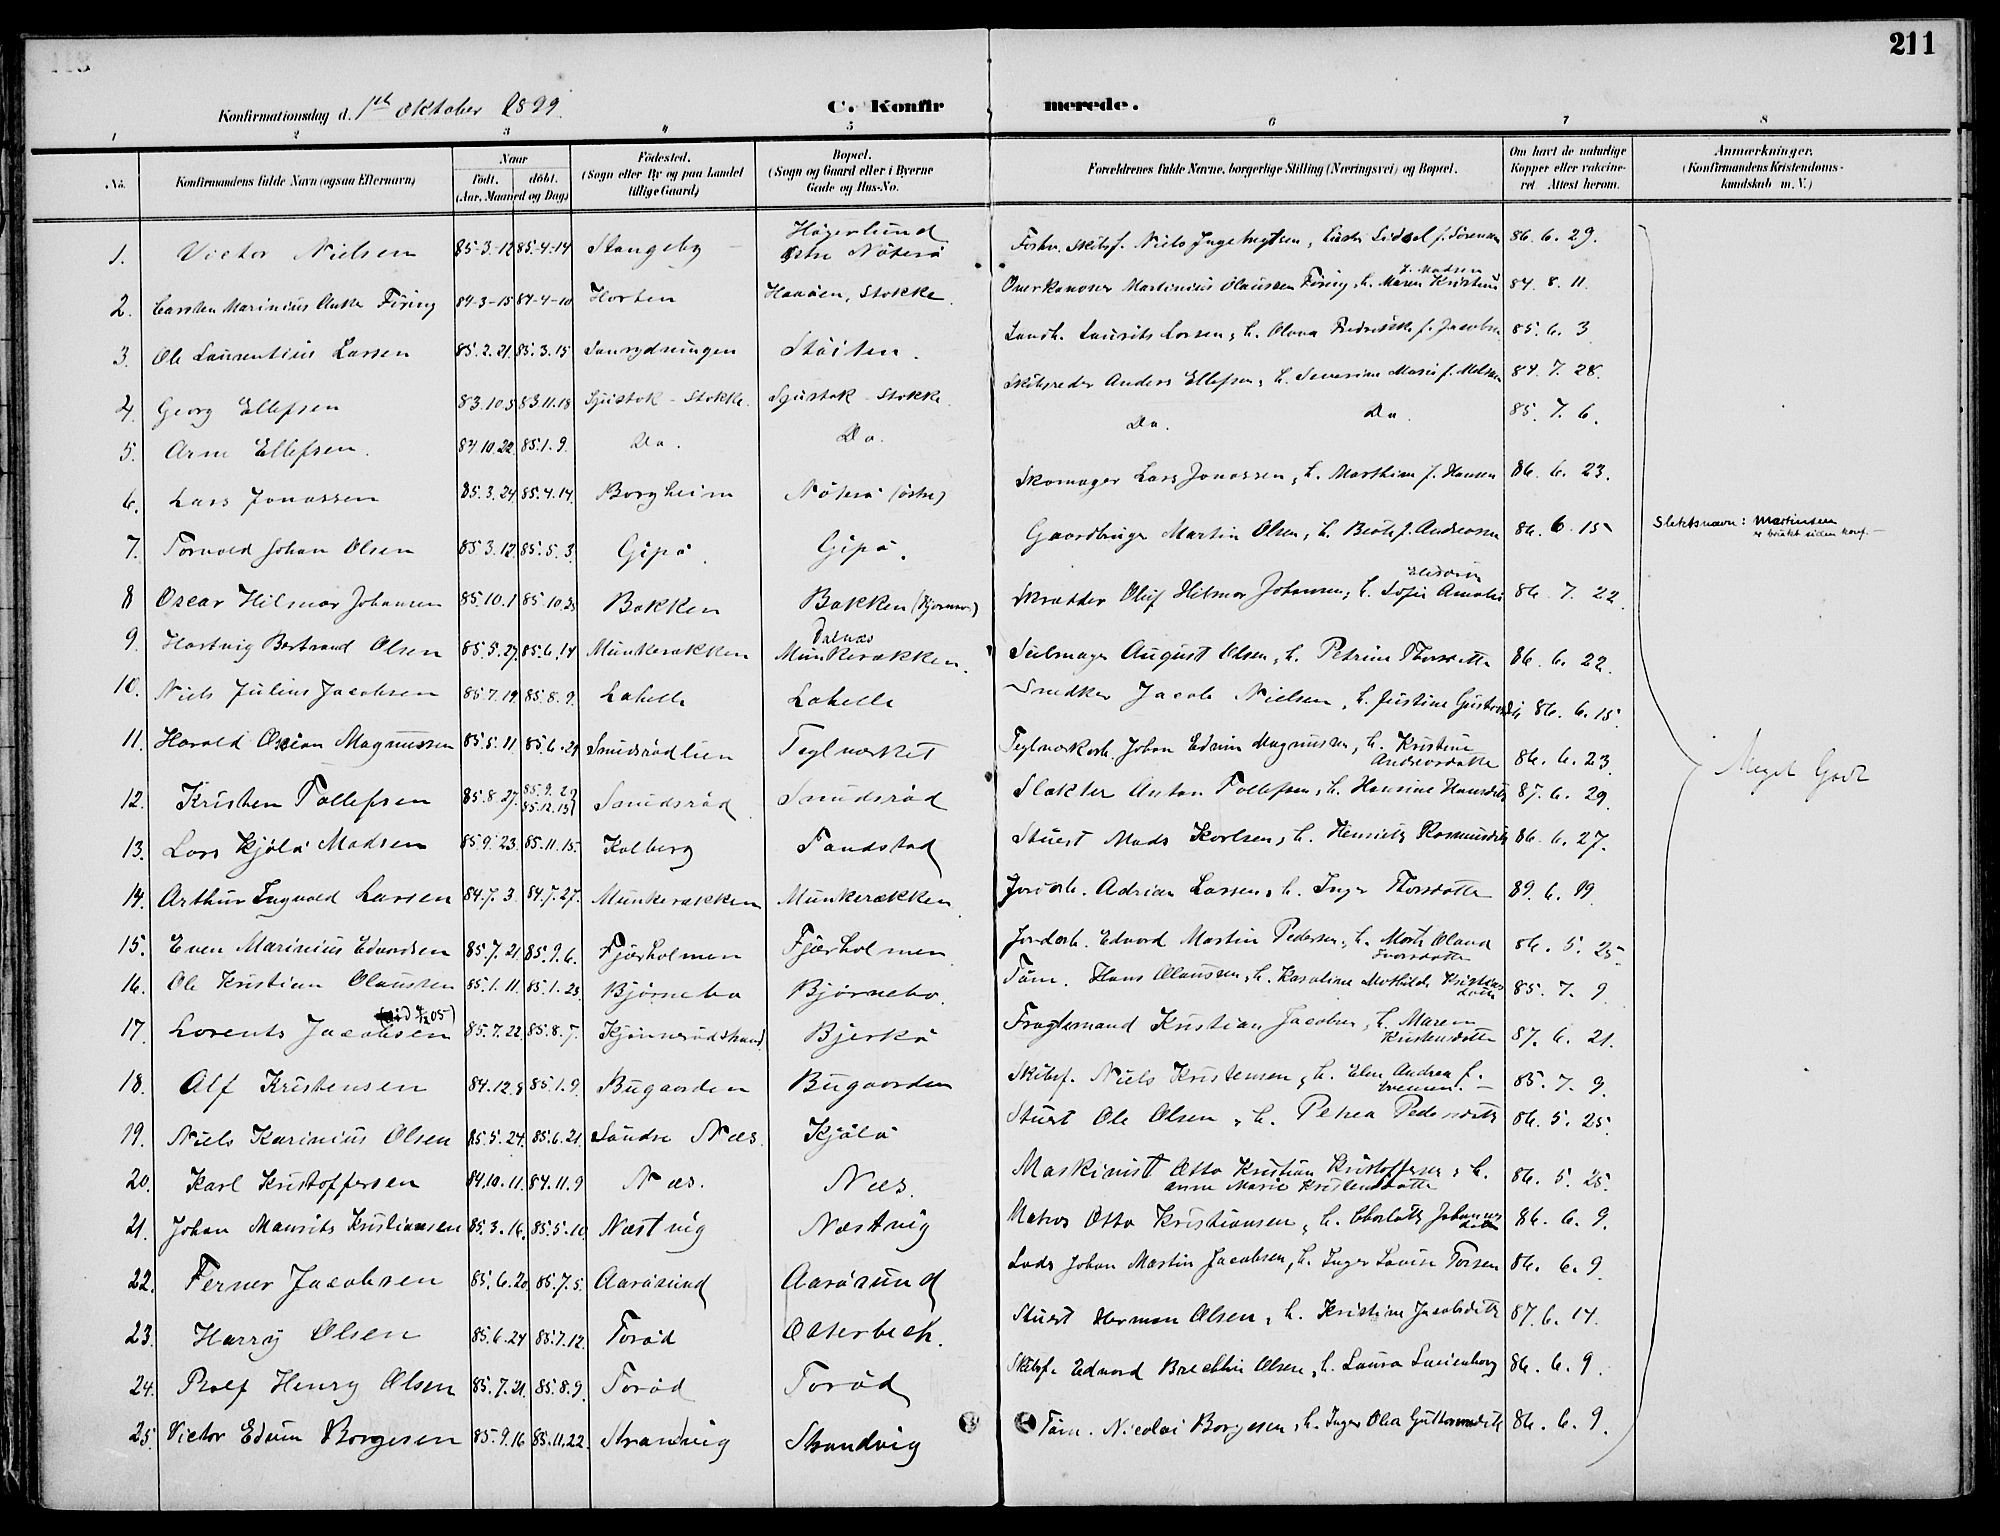 211
Konfirmationsdag d. 1ste Oktober 1899.
C. Konfirmerede.
1 2 3 4 5 6 7 8
No. Konfirmandens fulde Navn (ogsaa Efternavn) Naar født. døbt. (Aar, Maaned og Dag) Födested. (Sogn eller By og paa Landet tillige Gaard) Bopæl. (Sogn og Gaard eller i Byerne Gade og Hus-No. Forældrenes fulde Navne, borgerlige Stilling (Næringsvei) og Bopæl. Om havt de naturlige Kopper eller vakcineret Attest herom. Anmærkninger. (Konfirmandens Kristendomskundskab m. V.)
1. Victor Nielsen 85-3-12 85-4-14 Stangeby Högerlund Østre Nöterö Niels 86. 6. 29.
2. Carsten Marinius Föring 84-3-15 84-4-10 Horten Stokke. Martinius Olaussen Föring, h. Maren Kristine f. Madsen 84. 8. 11.
3. Ole Laurentius Larsen 85.2.21. 85.3.15 Sanrydningen Stöiten. Laurits Larsen, h. f. Jacobsen 85. 6. 3
4. Georg Ellefsen 83.10.5 83.11.18 Stokke. Stokke. Skibsreder Anders Ellefsen, h. Severine Marie f. 84. 7. 28.
5. Arne Ellefsen. 84.10.22 85.1.9. Do. Do. Do. Do. 85. 7. 6.
6. Lars Jonassen 85.3.24. 85.4.14. Borgheim Nöterö (östre) Skomager Lars Jonassen, h. Marthine f. Hansen 86. 6. 23.
7. Torvald Johan Olsen 85.3.12. 85.5.3. Gipö. Gipö. Gaardbruger Martin Olsen, h. f. Andreassen 86. 6. 15 Slektsnavn: Martinsen er brukt siden konf.
8 Oscar Hilmar Johansen 85.10.1 Bakken Bakken Skrædder Oluf Hilmar Johansen, h. Sofie Amalie 86. 7. 22.
9. Hartvig Bertrand Olsen 85.5.27. 85.6.14 Munkerækken Munkerækken. Seilmager August Olsen, h. Petrine 86. 6. 22.
10. Niels Julius Jacobsen 85.7.19. 85.8.9. Lahelle Lahelle Snedker Jacob Nielsen, h. Justine 86. 6. 15.
11. Harald Magnussen 85.5.11. 85.6.21 Smidsrödlien Teglværket Johan Edvin Magnussen, h. Kristine Andreasdatter 86. 6. 23.
12. Kristen Tollefsen 85.8.27. 85.9.27 85.12.13) Smidsröd Smidsröd Slakter Anton Tollefsen, h. Hansine 87. 6. 29.
13. Lars Kjölö Madsen 85.9.23. 85.11.15. Kolberg Fandstad Stuert Mads Karlsen, h. Henriette Rasmusdtr 86. 6. 27.
14. Arthur Ingvald Larsen 84.7.3. 84.7.27. Munkerækken Munkerækken. Jordarb. Adrian Larsen, h. Inger 89. 6. 19.
15. Even Marinius Edvardsen 85.7.21. 85.9.6. Fjærholmen Fjærholmen Jordarb. Edvard Martin Pedersen, h. 86. 5. 25.
16. Ole Kristian Olaussen 85.1.11. 85.1.23. Björnebo Björnebo. Töm. Hans Olaussen, h. Karoline Mathilde 85. 7. 9.
17. Lorents Jacobsen 85.7.22. 85.8.7. Bjerkö Fragtemand Kristian Jacobsen, h. Maren Kristensdatter 87. 6. 21.
18. Alf Kristensen 84.12.8 85.1.9. Bugaarden Bugaarden Skibsf. Niels Kristensen, h. Elen Andrea f. Evensen. 85. 7. 9.
19. Niels Karinius Olsen 85.5.24. 85.6.21. Söndre Næs. Kjölö Stuert Ole Olsen, h. Petrea Pedersdtr 86. 5. 25.
20. Karl Kristoffersen 84.10.11. 84.11.9 Næs. Næs. Maskinist Otto Kristian Kristoffersen, h. Anne Marie Kristensdatter 86. 5. 25.
21. Johan Maurits Kristiansen 85.3.16. 85.5.10. Næstvig Næstvig Matros Otto Kristiansen, h. Charlotte 86. 6. 9.
22. Ferner Jacobsen 85.6.20. 85.7.5. Aarösund Aarösund Lods Johan Martin Jacobsen, h. Inger Lovise 86. 6. 9.
23. Harry Olsen 85.6.24 85.7.12. Toröd Oterbeck. Stuert Herman Olsen, h. Kristine Jacobsdtr 87. 6. 14.
24. Rolf Henry Olsen 85.7.21. 85.8.9. Toröd Toröd Skibsf. Edvard Olsen, h. Laura 86. 6. 9.
25. Victor Edvin Borgesen 85.9.16 85.11.22. Strandvig Strandvig Töm. Nicolai Borgesen, h. Inger Olea 86. 6. 9.
Meget Godt